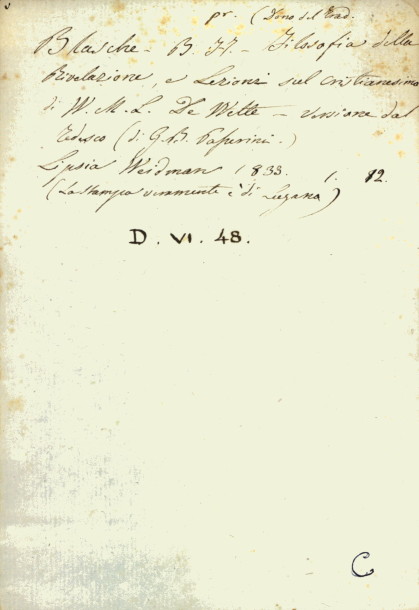 pr. (Dono del Trad.
Blasche - B. H. - Filosofia della
Rivelazione, e Lezioni sul Cristianesimo
di W. M. L. De Wette - versione dal
Tedesco (di G. B. Passerini.)
Lipsia Weidman 1833. 1. 12.
(La stampa veramente è di Lugano)
D. VI. 48.
C